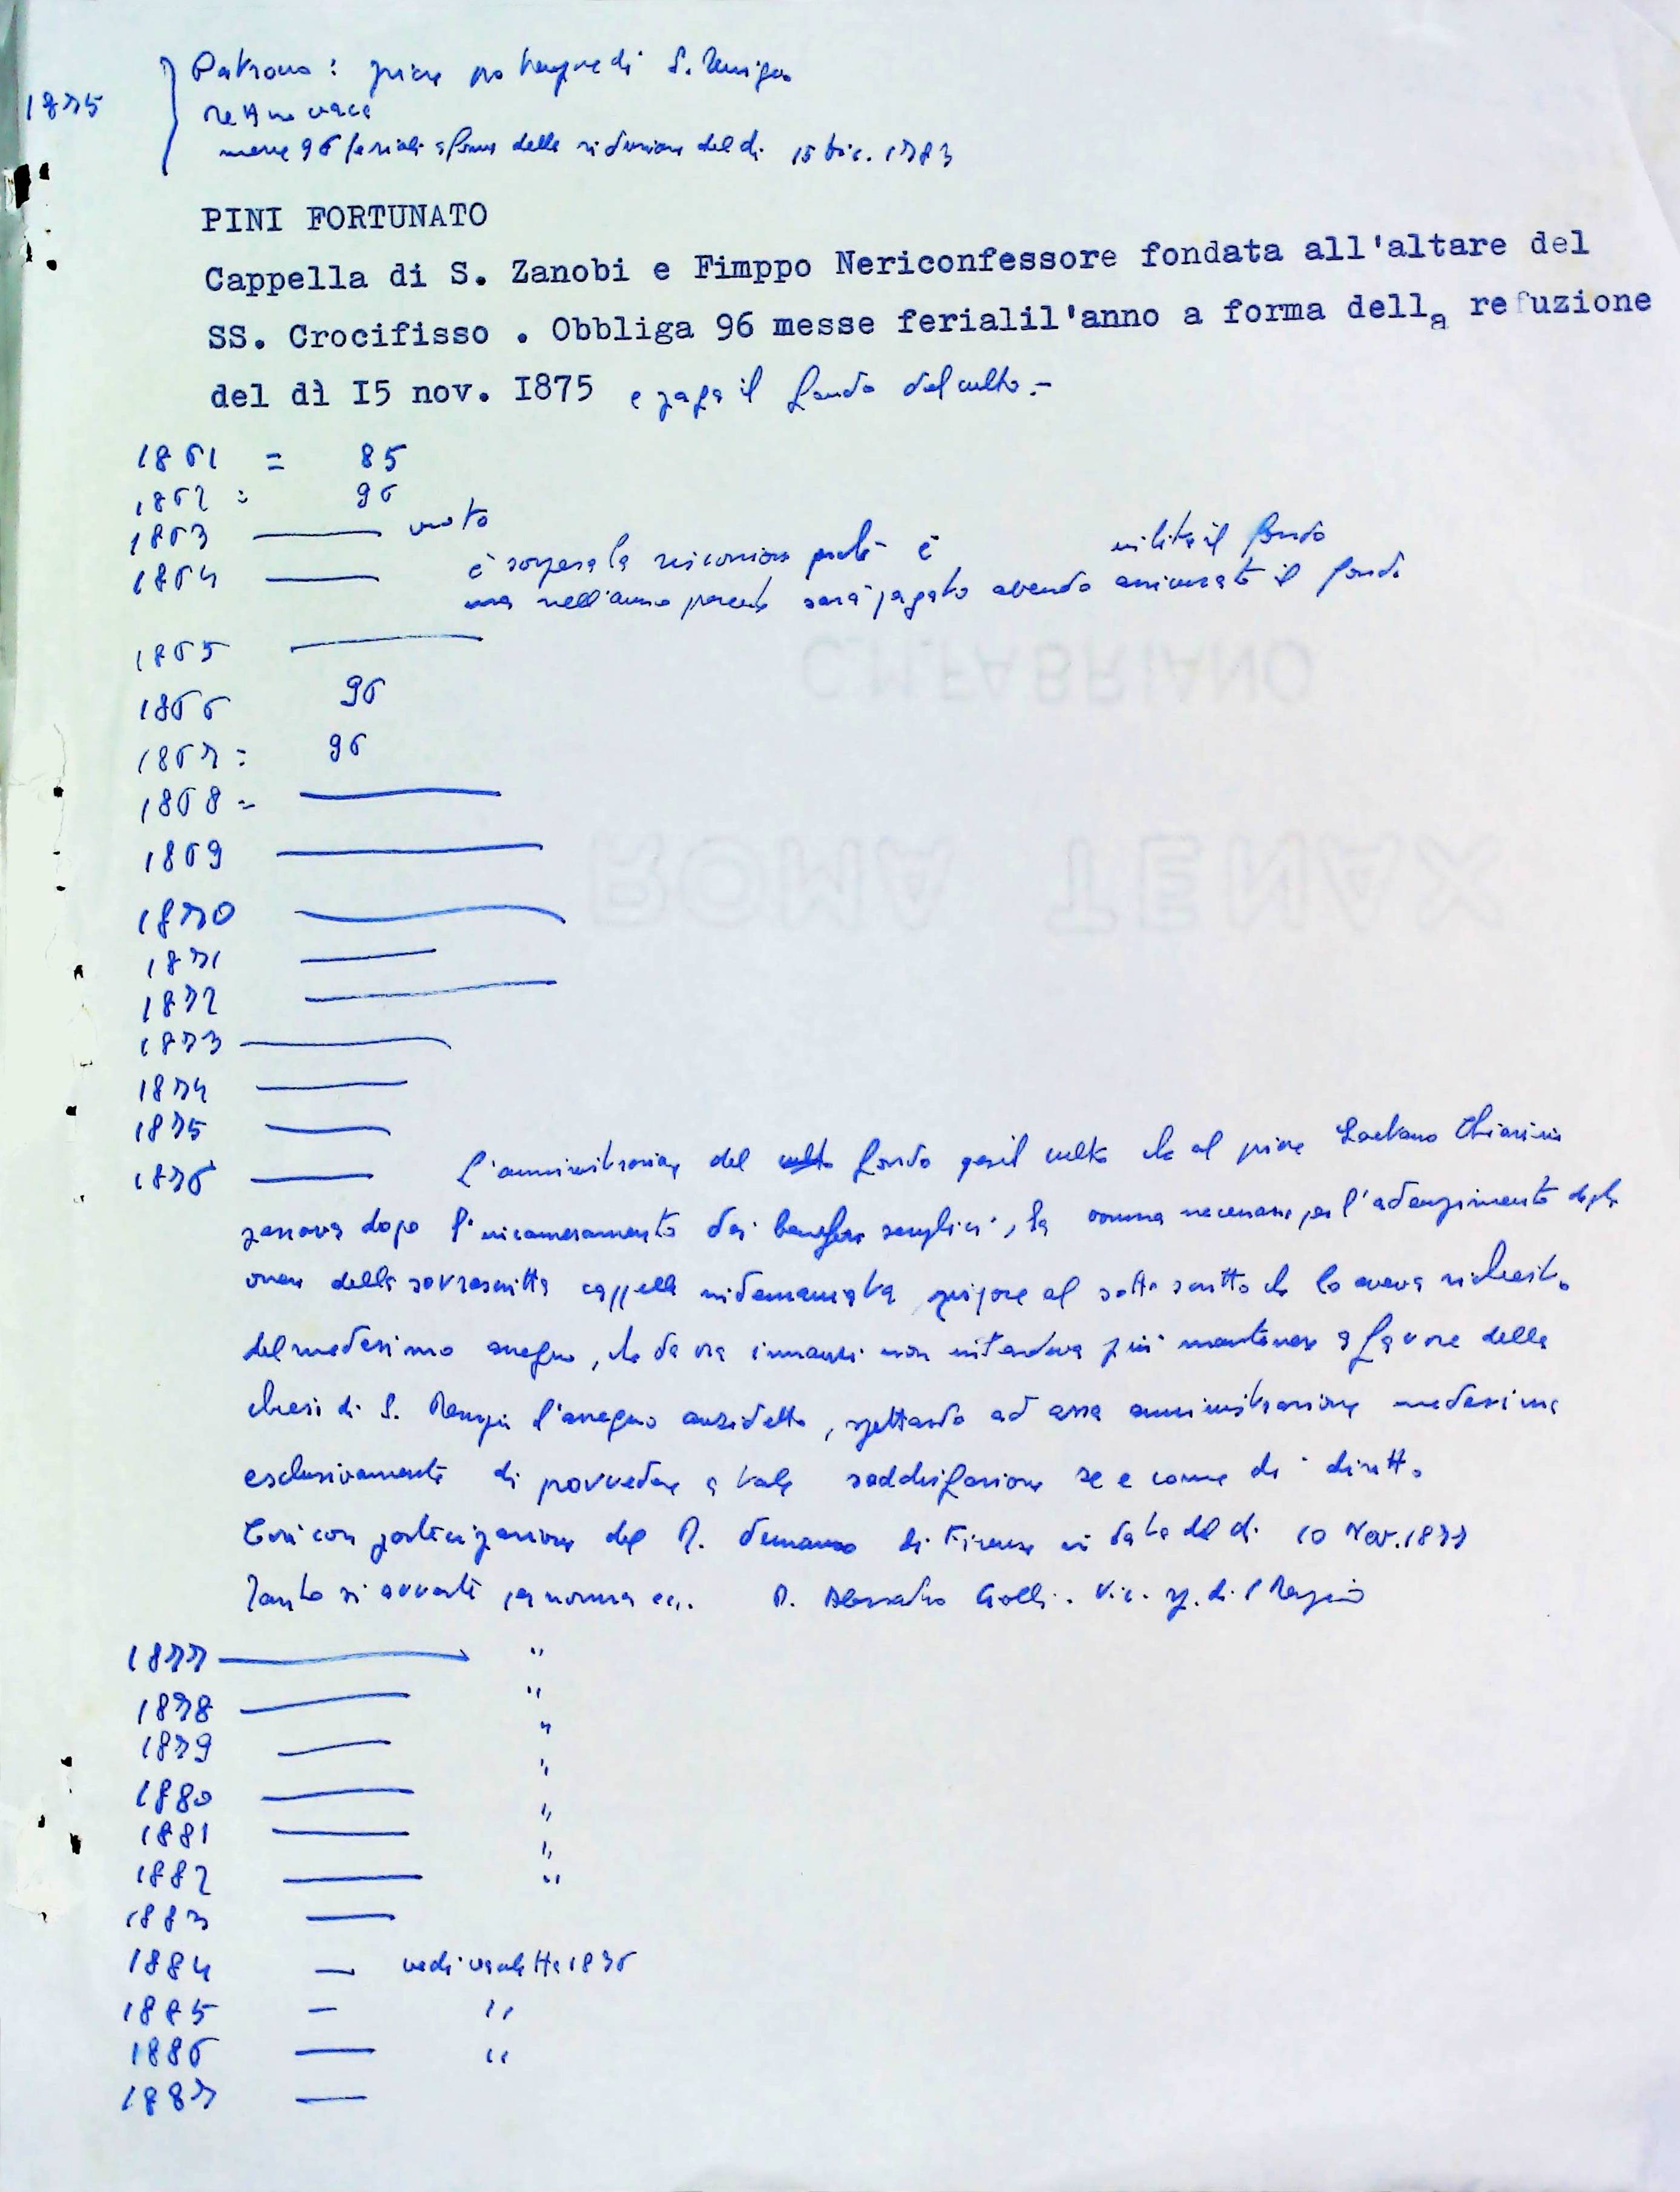 1875
Patrono: priore pro tempore di S. Remigio
rettore vaca
messe 96 feriali a forma della riduzione del dì 15 Dic. 1783
PINI FORTUNATO
Cappella di S. Zanobi e Fimppo Nericonfessore fondata all'altare del
SS. Crocifisso . Obbliga 96 messe ferialil'anno a forma della refuzione
del dì I5 nov. I875 e paga il fondo del culto.-
1861 = 85
1862 : 96
1863 vuoto
1864 è sospesa la riscossione perché è utile il fondo
ma nell'anno sarà pagato avendo assicurato il fondo
1865
1866 96
1867 = 96
1868 =
1869
1870
1871
1872
1873
1874
1875
1876 L'amministrazione del culto fondo per il culto che al priore Gaetano Chiarini
passava dopo l'incameramento dei benefizi semplici, la somma necessaria per l'adempimento degli
oneri della sovrascritta cappella priore al sottoscritto che lo aveva richiesto
del medesimo assegno, che da ora innanzi non intendeva più mantenere a favore della
chiesi di S. Remigio l'assegno anzidetto, spettando ad essa amministrazione medesima
esclusivamente di provvedere a tale soddisfazione se e come di diritto
Così con partecipazione del R. demanio di Firenze in data del dì 10 Nov. 1877
Tanto si avverte per norma ec.. P. Alessandro Golli. Vic. sp. di S Remigio
1877 "
1878 "
1879 "
1880 "
1881 "
1882 "
1883 "
1884 vedi 1876
1885 "
1886 "
1887
C.M.FABRIANO
ROMA TENAX